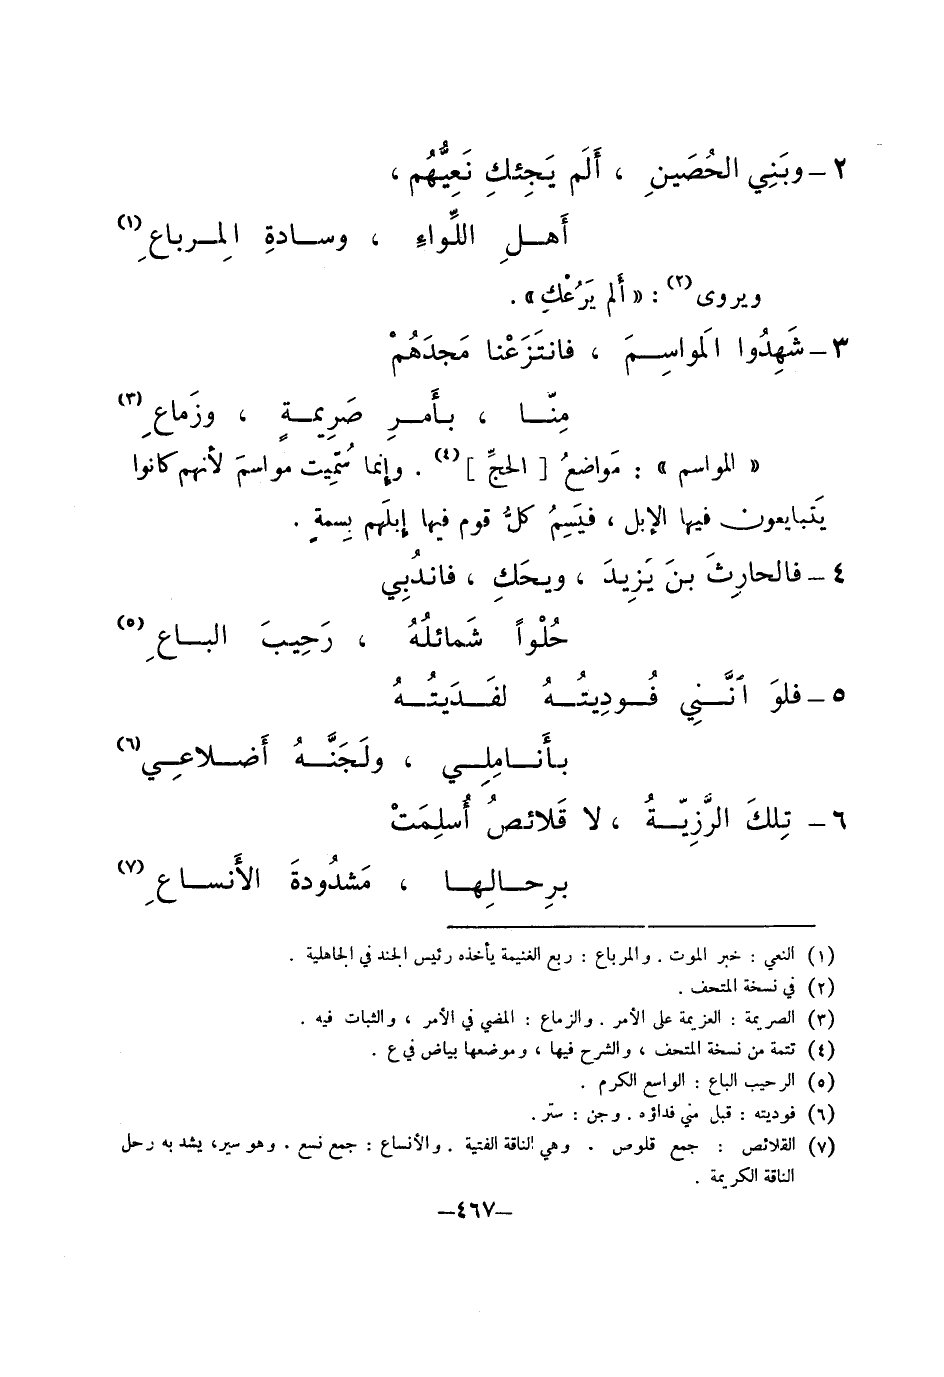 ٢ – وبَنِي الحُصَينِ ، أَلَم يَجِئكِ نَعِيُّهُم ،
أَهـلِ اللِّواءِ ، وسـادةِ المِرباعِ (١)
ويروى (٢) : « أَلم يَرُعْكِ» .
٣ – شَهِدُوا المَواسِـمَ ، فانتَزَعْنا مَجدَهُمْ
مِنّـا ، بـأَمـرِ صَرِيمـةٍ ، وزَماعِ (٣)
« المواسم » : مَواضعُ [ الحجِّ ] (٤) . وإنما سُمِّيت مواسمَ لأنهم كانوا
يَتبايعون فيها الإبل ، فيَسِمُ كلُّ قوم فيها إبلَهم بِسمةٍ .
٤ – فالحارِثَ بنَ يَزِيدَ ، ويحَكِ ، فاندُبِي
حُلْواً شَمائلُهُ ، رَحِيبَ البـاعِ (٥)
٥ – فلوَ ٱنَّـنِي فُـودِيتُـهُ لفَـدَيتُـهُ
بـأَنـامِلِـي ، ولَجَنَّـهُ أَضـلاعِـي (٦)
٦ – تِلكَ الرَّزِيّـةُ ، لا قَلائصُ أُسلِمَتْ
بـرِحـالِـها ، مَشدُودةَ الأَنسـاعِ (٧)
(١) النعي : خبر الموت . والمرباع : ربع الغنيمة يأخذه رئيس الجند في الجاهلية .
(٢) في نسخة المتحف .
(٣) الصريمة : العزيمة على الأمر . والزماع : المضي في الأمر ، والثبات فيه .
(٤) تتمة من نسخة المتحف ، والشرح فيها ، وموضعها بياض في ع .
(٥) الرحيب الباع : الواسع الكرم .
(٦) فوديته : قبل مني فداؤه . وجن : ستّر .
(٧) القلائص : جمع قلوص . وهي الناقة الفتية . والأنساع : جمع نسع . وهو سير، يشد به رحل
الناقة الكريمة .
–٤٦٧–